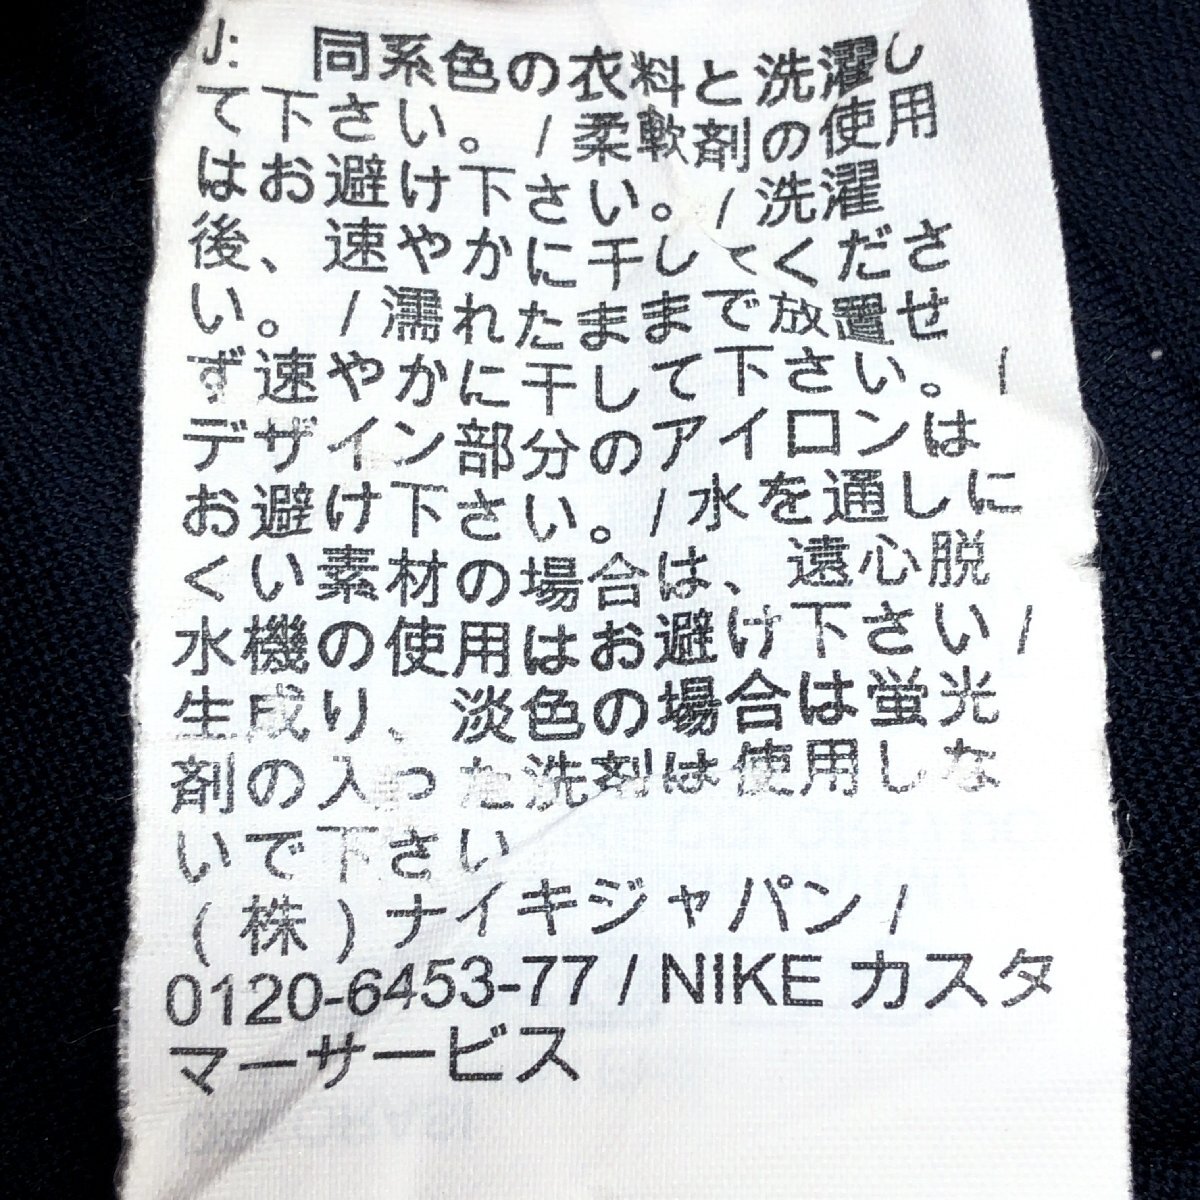 J: 同系色の衣料と洗濯し
て下さい。/柔軟剤の使用
はお避け下さい。/洗濯
後、速やかに干してくださ
い。/濡れたままで放置せ
ず速やかに干して下さい。/
デザイン部分のアイロンは
お避け下さい。/水を通しに
くい素材の場合は、遠心脱
水機の使用はお避け下さい/
生成り、淡色の場合は蛍光
剤の入った洗剤は使用しな
いで下さい
(株)ナイキジャパン/
0120-6453-77 / NIKE カスタ
マーサービス